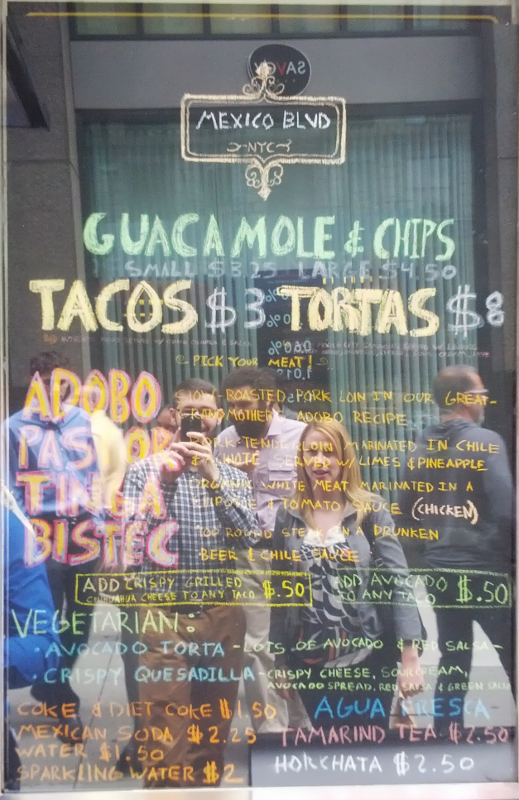 SAVOY
MEXICO BLVD
NYC
GUACAMOLE & CHIPS
SMALL $3.25 LARGE $4.50
TACOS $3 TORTAS $8
PICK YOUR MEAT!
ADOBO SLOW-ROASTED PORK LOIN IN OUR GREAT-
GRANDMOTHER'S ADOBO RECIPE
PASTOR PORK TENDERLOIN MARINATED IN CHILE
& ACHIOTE SERVED W/ LIMES & PINEAPPLE
TINGA ORGANIC WHITE MEAT MARINATED IN A
CHIPOTLE & TOMATO SAUCE (CHICKEN)
BISTEC TOP ROUND STEAK IN A DRUNKEN
BEER & CHILE SAUCE
ADD CRISPY GRILLED
CHIHUAHUA CHEESE TO ANY TACO $.50
ADD AVOCADO
TO ANY TACO $.50
VEGETARIAN:
• AVOCADO TORTA - LOTS OF AVOCADO & RED SALSA -
• CRISPY QUESADILLA - CRISPY CHEESE, SOUR CREAM,
AVOCADO SPREAD, RED SALSA & GREEN SALSA
COKE & DIET COKE $1.50
MEXICAN SODA $2.25
WATER $1.50
SPARKLING WATER $2
AGUA FRESCA
TAMARIND TEA $2.50
HORCHATA $2.50